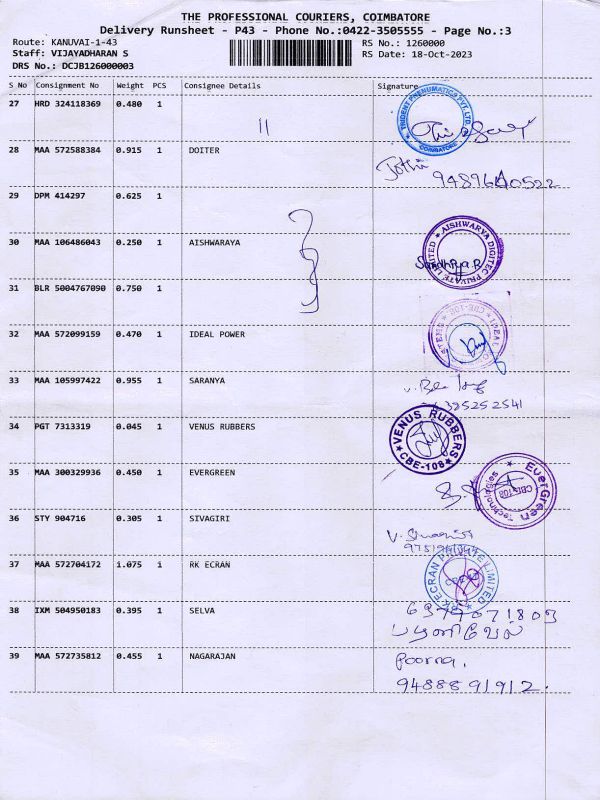 THE PROFESSIONAL COURIERS, COIMBATORE
Delivery Runsheet - P43 - Phone No.:0422-3505555 - Page No.:3
Route: KANUVAI-1-43 RS No.: 1260000
Staff: VIJAYADHARAN S RS Date: 18-Oct-2023
DRS No.: DCJB126000003
S No Consignment No Weight PCS Consignee Details Signature
27 HRD 324118369 0.480 1 11
TRIDENT PHENUMATICS PVT.LTD. COIMBATORE
28 MAA 572588384 0.915 1 DOITER Jothi
29 DPM 414297 0.625 1
30 MAA 106486043 0.250 1 AISHWARAYA
AISHWARYA DIGITEC PRIVATE LIMITED
Sandhiya.R
31 BLR 5004767090 0.750 1
32 MAA 572099159 0.470 1 IDEAL POWER
33 MAA 105997422 0.955 1 SARANYA
34 PGT 7313319 0.045 1 VENUS RUBBERS
VENUS RUBBERS CBE-108
35 MAA 300329936 0.450 1 EVERGREEN
EverGreen Technologies CBE-108
36 STY 904716 0.305 1 SIVAGIRI
37 MAA 572704172 1.075 1 RK ECRAN
RK ECRAN PRIVATE LIMITED
38 IXM 504950183 0.395 1 SELVA
பழனிவேல்
39 MAA 572735812 0.455 1 NAGARAJAN Poorna.
9488891912.